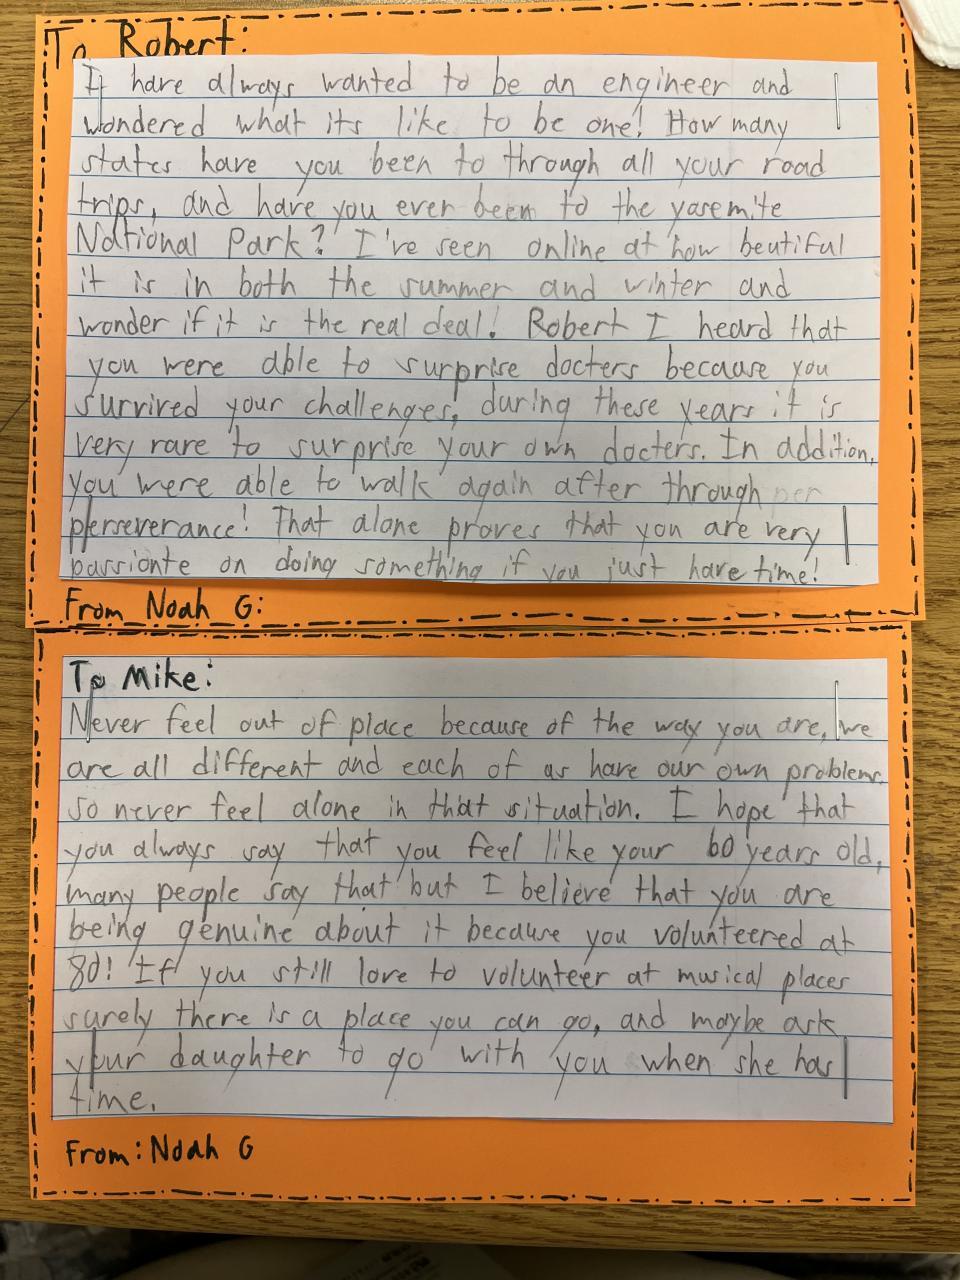 To Robert:
I have always wanted to be an engineer and
wondered what its like to be one! How many
states have you been to through all your road
trips, and have you ever been to the yasemite
National Park? I've seen online at how beutiful
it is in both the summer and winter and
wonder if it is the real deal! Robert I heard that
you were able to surprise docters because you
survived your challenges, during these years it is
very rare to surprise your own docters. In addition,
you were able to walk again after through per
perseverance! That alone proves that you are very
passionte on doing something if you just have time!
From Noah G:
To Mike:
Never feel out of place because of the way you are, we
are all different and each of us have our own problems
so never feel alone in that situation. I hope that
you always say that you feel like your 60 years old,
many people say that but I believe that you are
being genuine about it because you volunteered at
80! If you still love to volunteer at musical places
surely there is a place you can go, and maybe ask
your daughter to go with you when she has
time.
From: Noah G